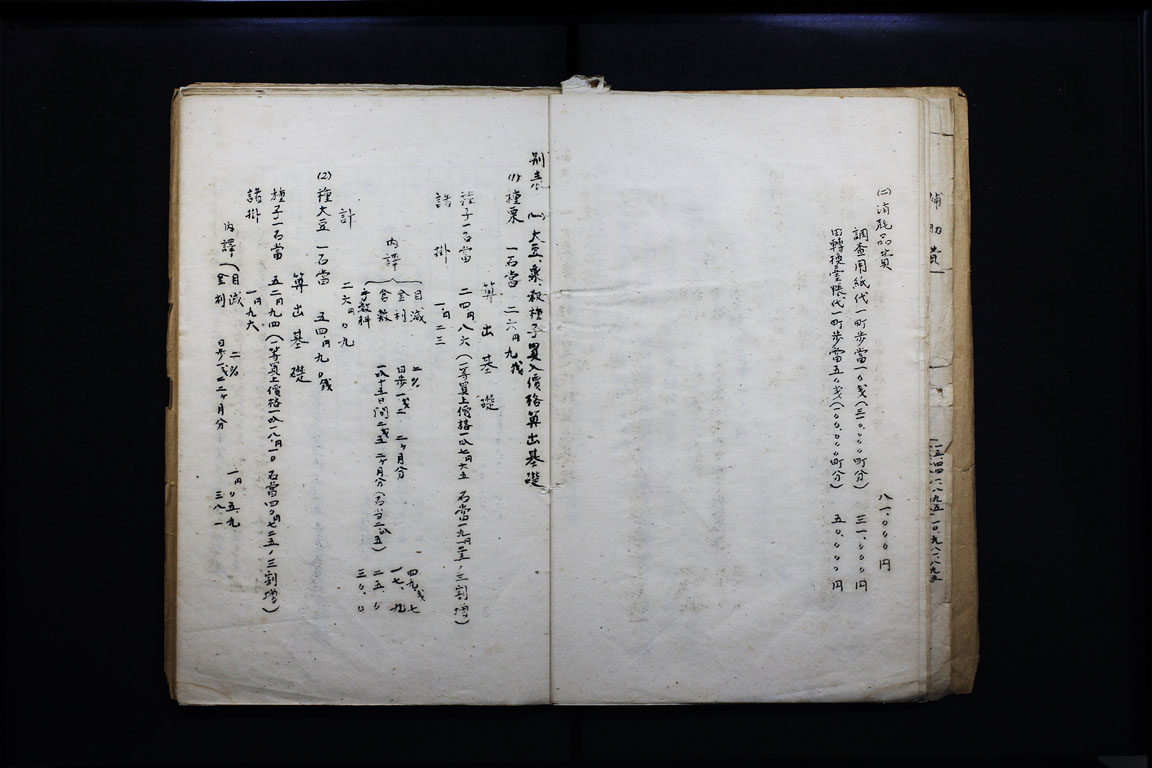 補助費
(二) 消耗品費 八一,〇〇〇円
調査用紙代一町歩當一〇戔(三一〇,〇〇〇町分) 三一,〇〇〇円
田轉換臺帳代一町歩當五〇戔(一〇〇,〇〇〇町分) 五〇,〇〇〇円
別表 (一) 大豆、粟、穀種子買入價格算出基礎
(1) 種粟 一石當 二六円〇九戔
算出基礎
種子一石當 二四円八六(二等買上價格一叺七円六五 石當一九円一二五ノ三割増)
諸掛 一円二三
内譯
目減 二% 四九戔七
金利 日歩一戔二 二ヶ月分 一七.九
倉敷 一叺十五日間二戔五 二ヶ月分(石当二叺五) 二五.〇
手数料 三〇.〇
計 二六円〇九
(2) 種大豆 一石當 五四円九〇戔
算出基礎
種子一石當 五二円九四(二等買上價格一叺一八円一〇 石當四〇円七二五ノ三割増)
諸掛 一円九六
内譯
目減 二% 一円〇五.九
金利 日歩一戔二 二ヶ月分 三八.一